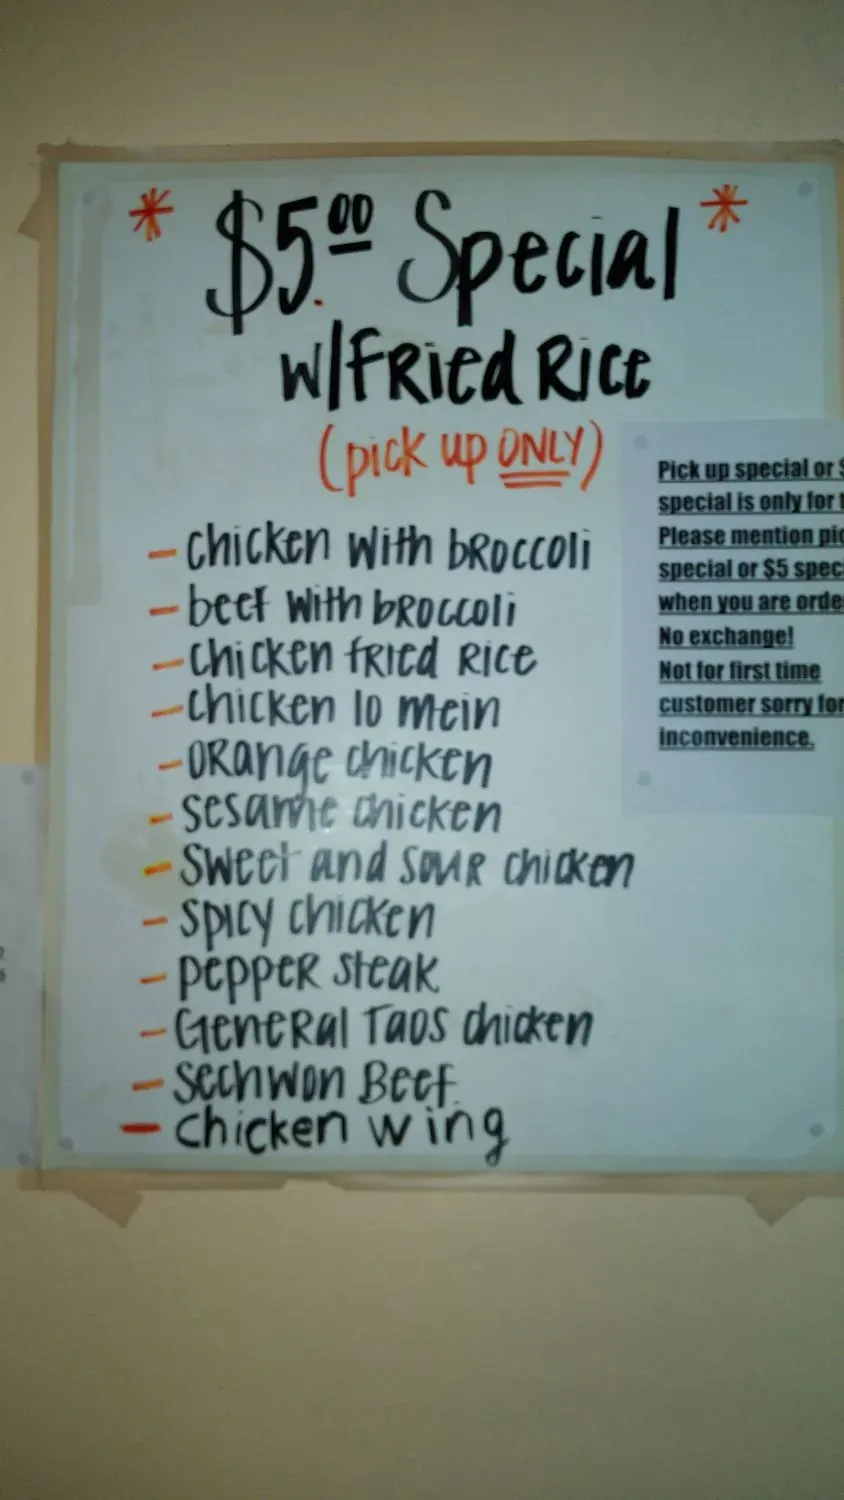 * $5.00 Special *
w/Fried Rice
(pick up ONLY)
- chicken with broccoli
- beef with broccoli
- chicken fried rice
- chicken lo mein
- orange chicken
- sesame chicken
- sweet and sour chicken
- spicy chicken
- pepper steak
- General Taos chicken
- Sechwon Beef
- chicken wing
Pick up special or $
special is only for
Please mention
special or $5
when you are
No exchange!
Not for first time
customer sorry for
inconvenience.